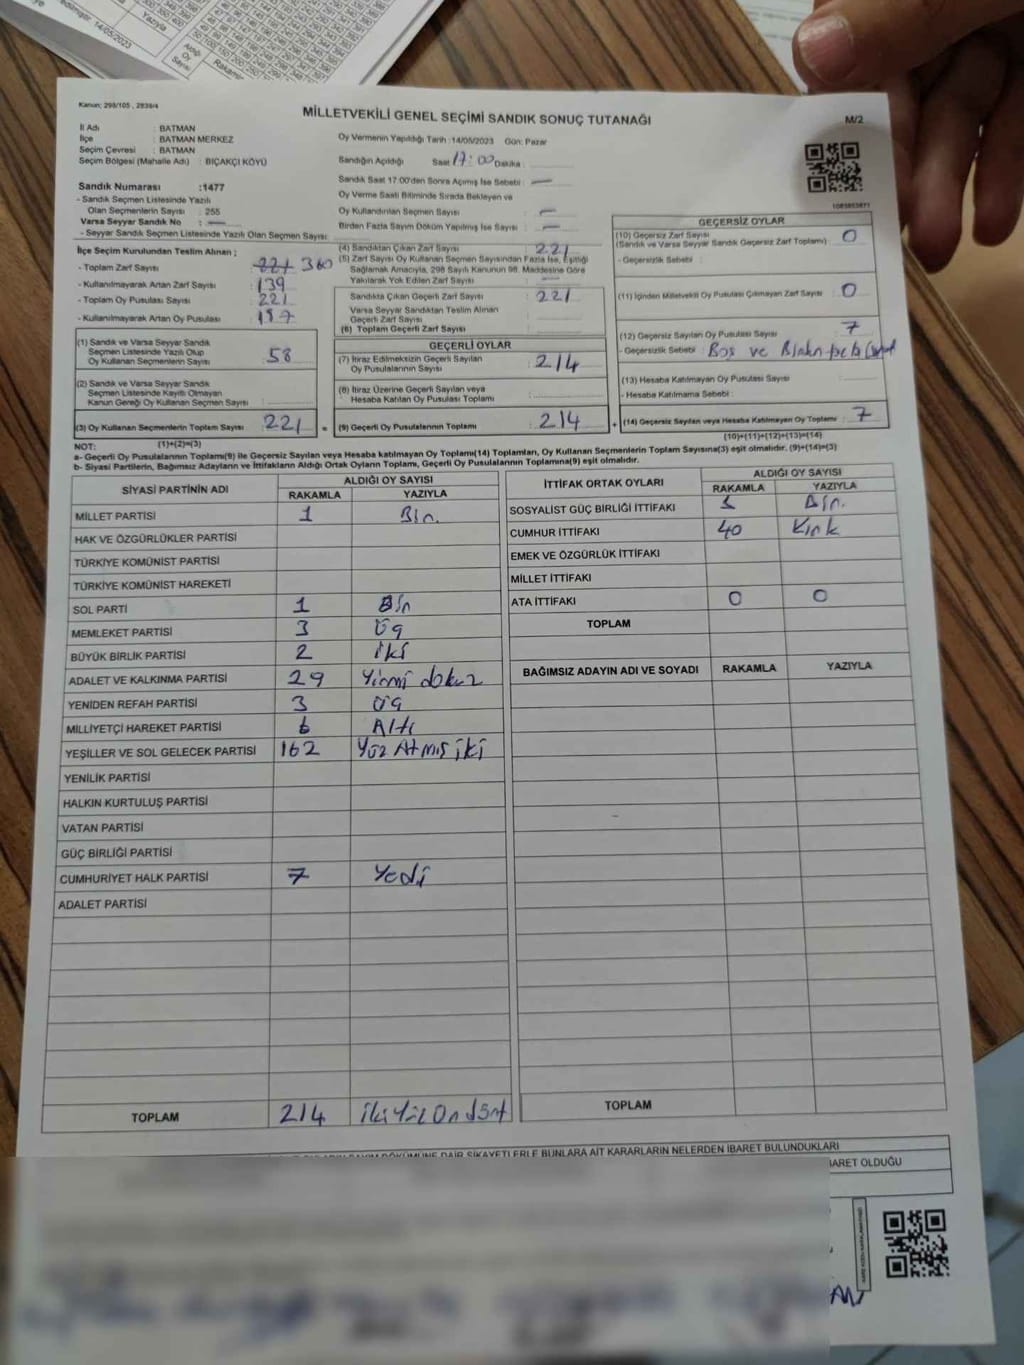 edilmiştir. 14/05/2023
Yazıyla
Aldığı
Oy
Sayısı
Rakamla
Kanun; 298/105 , 2839/4
MİLLETVEKİLİ GENEL SEÇİMİ SANDIK SONUÇ TUTANAĞI
M/2
İl Adı : BATMAN
İlçe : BATMAN MERKEZ
Seçim Çevresi : BATMAN
Seçim Bölgesi (Mahalle Adı) : BIÇAKÇI KÖYÜ
Oy Vermenin Yapıldığı Tarih :14/05/2023 Gün: Pazar
Sandığın Açıldığı Saat 17:00 Dakika :
Sandık Saat 17.00'den Sonra Açılmış İse Sebebi : —
Oy Verme Saati Bitiminde Sırada Bekleyen ve
Oy Kullandırılan Seçmen Sayısı : —
Birden Fazla Sayım Döküm Yapılmış İse Sayısı : —
Sandık Numarası :1477
- Sandık Seçmen Listesinde Yazılı
Olan Seçmenlerin Sayısı : 255
Varsa Seyyar Sandık No : —
- Seyyar Sandık Seçmen Listesinde Yazılı Olan Seçmen Sayısı :
İlçe Seçim Kurulundan Teslim Alınan ;
- Toplam Zarf Sayısı : 221 360
- Kullanılmayarak Artan Zarf Sayısı : 139
- Toplam Oy Pusulası Sayısı : 221
- Kullanılmayarak Artan Oy Pusulası :
(1) Sandık ve Varsa Seyyar Sandık
Seçmen Listesinde Yazılı Olup
Oy Kullanan Seçmenlerin Sayısı : 58
(2) Sandık ve Varsa Seyyar Sandık
Seçmen Listesinde Kayıtlı Olmayan
Kanun Gereği Oy Kullanan Seçmen Sayısı :
(3) Oy Kullanan Seçmenlerin Toplam Sayısı : 221 =
(4) Sandıktan Çıkan Zarf Sayısı : 221
(5) Zarf Sayısı Oy Kullanan Seçmen Sayısından Fazla İse, Eşitliği
Sağlamak Amacıyla, 298 Sayılı Kanunun 98. Maddesine Göre
Yakılarak Yok Edilen Zarf Sayısı : —
Sandıkta Çıkan Geçerli Zarf Sayısı : 221
Varsa Seyyar Sandıktan Teslim Alınan
Geçerli Zarf Sayısı :
(6) Toplam Geçerli Zarf Sayısı :
GEÇERLİ OYLAR
(7) İtiraz Edilmeksizin Geçerli Sayılan
Oy Pusulasının Sayısı : 214
(8) İtiraz Üzerine Geçerli Sayılan veya
Hesaba Katılan Oy Pusulası Toplamı :
(9) Geçerli Oy Pusulalarının Toplamı : 214 +
1085853871
GEÇERSİZ OYLAR
(10) Geçersiz Zarf Sayısı
(Sandık ve Varsa Seyyar Sandık Geçersiz Zarf Toplamı) : 0
- Geçersizlik Sebebi :
(11) İçinden Milletvekili Oy Pusulası Çıkmayan Zarf Sayısı : 0
(12) Geçersiz Sayılan Oy Pusulası Sayısı : 7
- Geçersizlik Sebebi : Boş ve
(13) Hesaba Katılmayan Oy Pusulası Sayısı :
- Hesaba Katılmama Sebebi :
(14) Geçersiz Sayılan veya Hesaba Katılmayan Oy Toplamı : 7
NOT: (1)+(2)=(3)
(10)+(11)+(12)+(13)=(14)
a- Geçerli Oy Pusulalarının Toplamı(9) ile Geçersiz Sayılan veya Hesaba katılmayan Oy Toplamı(14) Toplamları, Oy Kullanan Seçmenlerin Toplam Sayısına(3) eşit olmalıdır. (9)+(14)=(3)
b- Siyasi Partilerin, Bağımsız Adayların ve İttifakların Aldığı Ortak Oyların Toplamı, Geçerli Oy Pusulalarının Toplamına(9) eşit olmalıdır.
SİYASİ PARTİNİN ADI
ALDIĞI OY SAYISI
RAKAMLA YAZIYLA
MİLLET PARTİSİ 1 Bir.
HAK VE ÖZGÜRLÜKLER PARTİSİ
TÜRKİYE KOMÜNİST PARTİSİ
TÜRKİYE KOMÜNİST HAREKETİ
SOL PARTİ 1 Bir
MEMLEKET PARTİSİ 3 Üç
BÜYÜK BİRLİK PARTİSİ 2 İki
ADALET VE KALKINMA PARTİSİ 29 Yirmi dokuz
YENİDEN REFAH PARTİSİ 3 Üç
MİLLİYETÇİ HAREKET PARTİSİ 6 Altı
YEŞİLLER VE SOL GELECEK PARTİSİ 162 Yüz Atmış iki
YENİLİK PARTİSİ
HALKIN KURTULUŞ PARTİSİ
VATAN PARTİSİ
GÜÇ BİRLİĞİ PARTİSİ
CUMHURİYET HALK PARTİSİ 7 Yedi
ADALET PARTİSİ
TOPLAM 214 iki Yüz On dört
İTTİFAK ORTAK OYLARI
ALDIĞI OY SAYISI
RAKAMLA YAZIYLA
SOSYALİST GÜÇ BİRLİĞİ İTTİFAKI 1 Bir.
CUMHUR İTTİFAKI 40 Kırk
EMEK VE ÖZGÜRLÜK İTTİFAKI
MİLLET İTTİFAKI
ATA İTTİFAKI 0 0
TOPLAM
BAĞIMSIZ ADAYIN ADI VE SOYADI RAKAMLA YAZIYLA
TOPLAM
DÖKÜMÜNE DAİR ŞİKAYETLERLE BUNLARA AİT KARARLARIN NELERDEN İBARET BULUNDUKLARI
BARET OLDUĞU